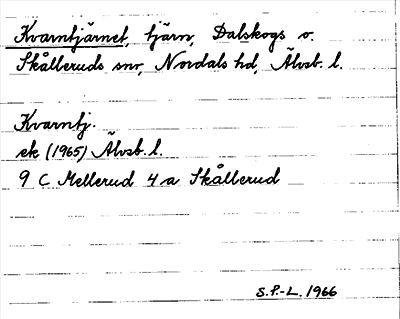 Kvarntjärnet, tjärn, Dalskogs o.
Skålleruds snr, Nordals hd, Älvsb. l.
Kvarntj.
ek (1965) Älvsb. l.
9 C Mellerud 4 a Skållerud
S.P.-L. 1966